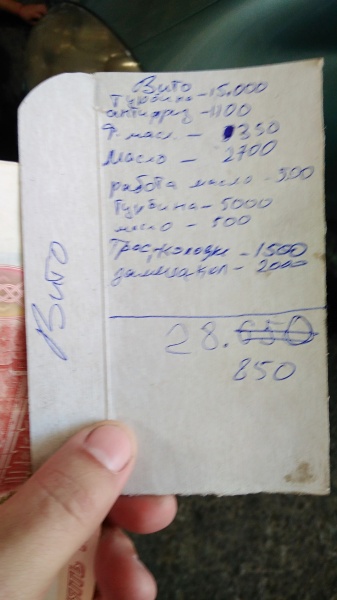 Вито
Турбина - 15.000
антифриз - 1100
Ф. масл. - 350
Масло - 2700
работа масло - 500
Турбина - 5000
масло - 500
Трос, колодки - 1500
замена кол - 2000
28.650
850
Вито